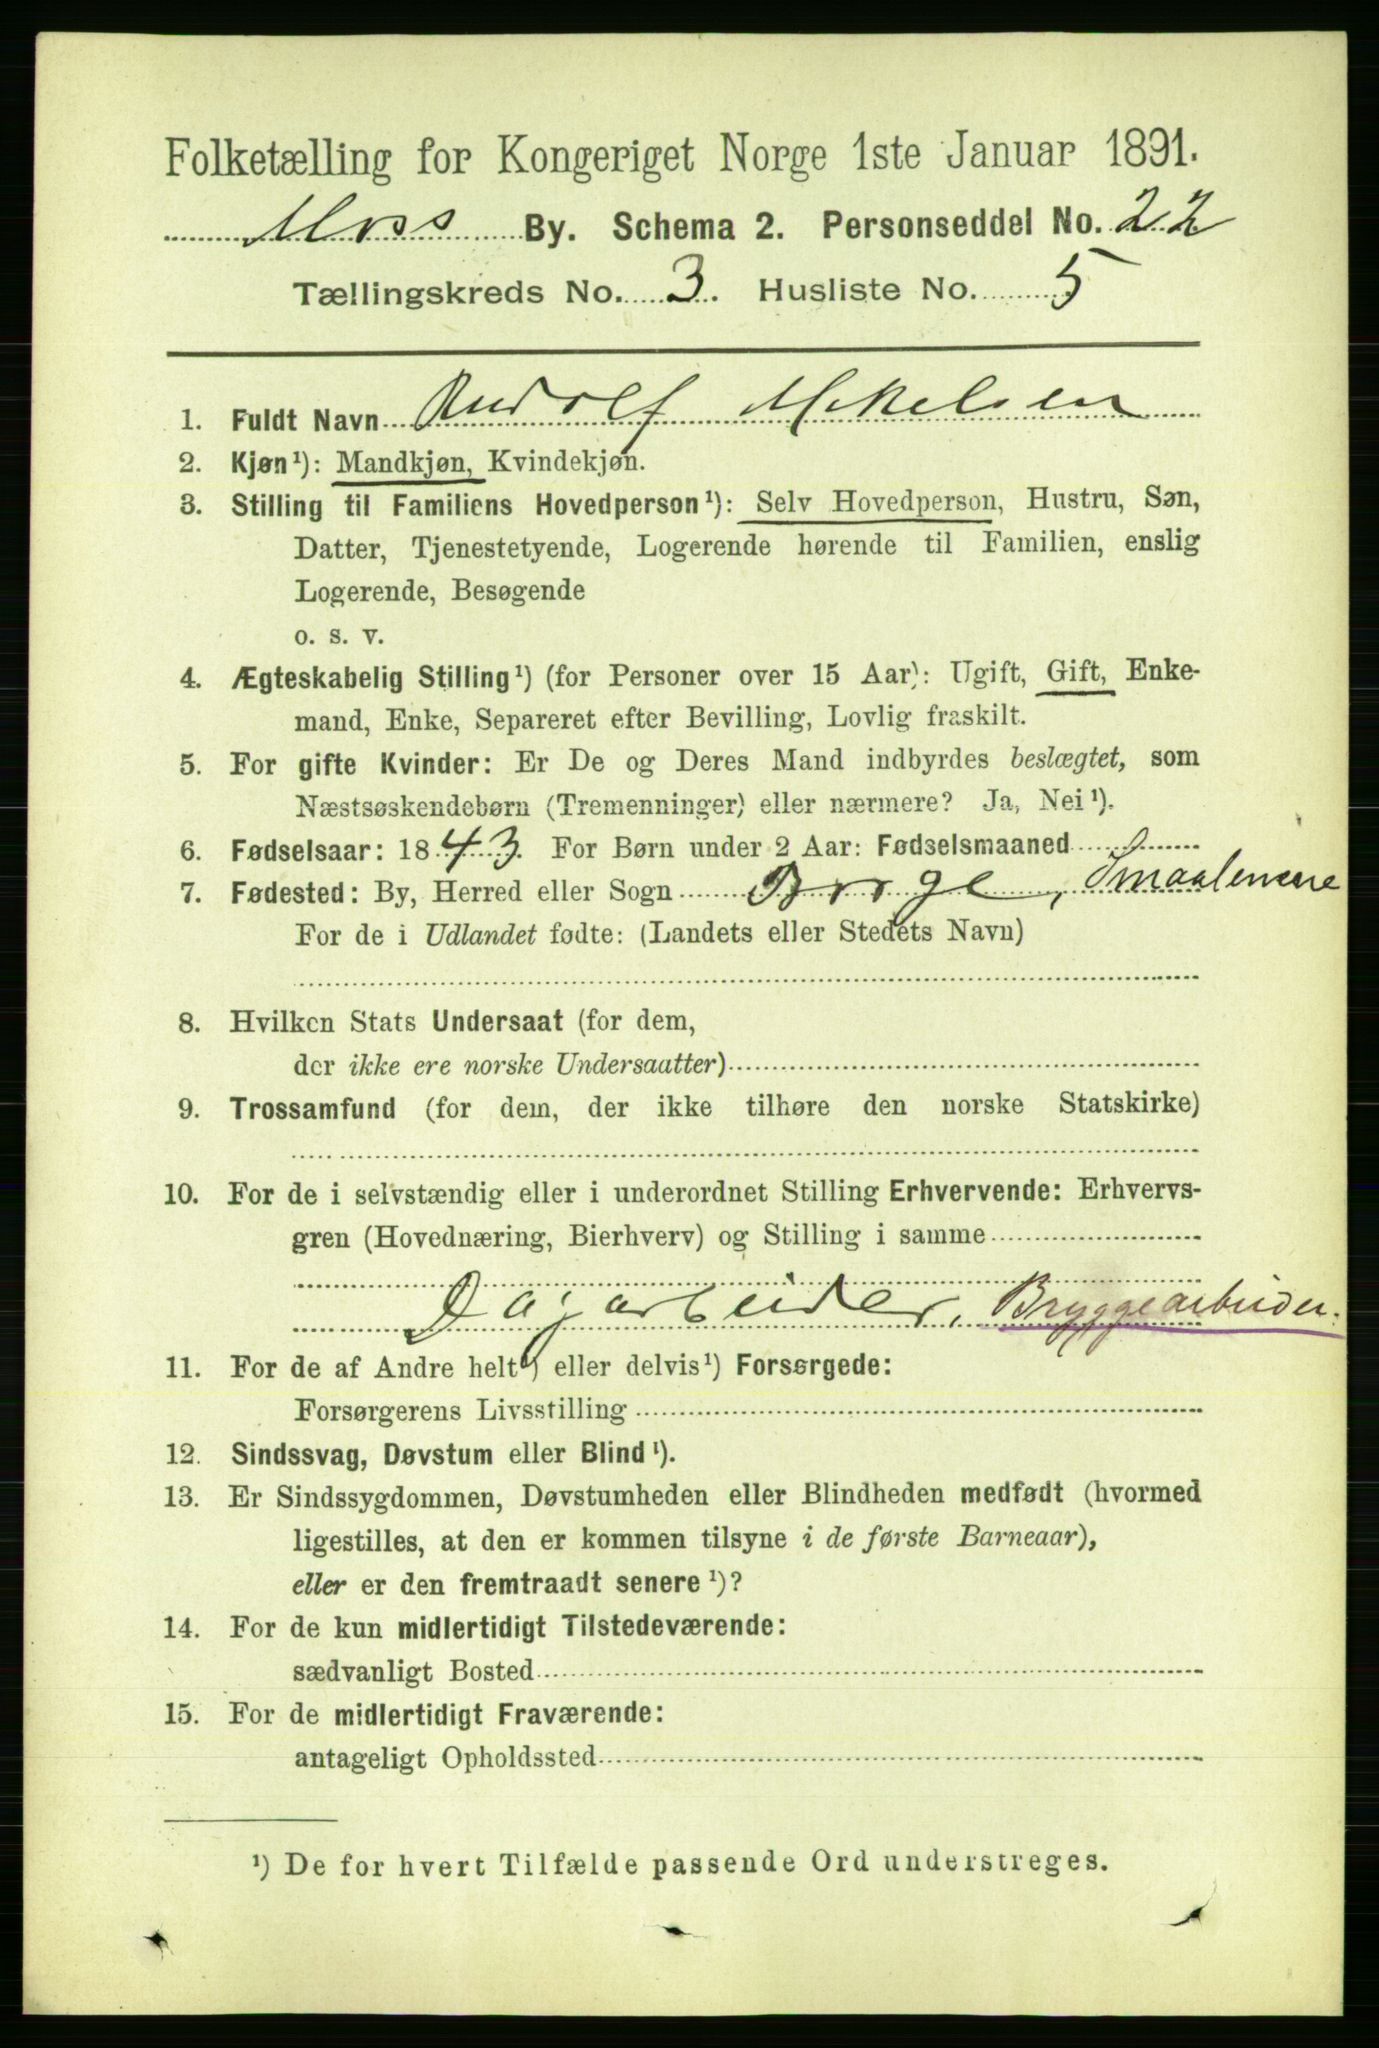 Folketælling for Kongeriget Norge 1ste Januar 1891.
Moss By. Schema 2. Personseddel No. 22
Tællingskreds No. 3. Husliste No. 5
1. Fuldt Navn Rudolf Mikelsen
2. Kjøn¹): Mandkjøn, Kvindekjøn.
3. Stilling til Familiens Hovedperson¹): Selv Hovedperson, Hustru, Søn,
Datter, Tjenestetyende, Logerende hørende til Familien, enslig
Logerende, Besøgende
o. s. v.
4. Ægteskabelig Stilling¹) (for Personer over 15 Aar): Ugift, Gift, Enke-
mand, Enke, Separeret efter Bevilling, Lovlig fraskilt.
5. For gifte Kvinder: Er De og Deres Mand indbyrdes beslægtet, som
Næstsøskendebørn (Tremenninger) eller nærmere? Ja, Nei¹).
6. Fødselsaar: 1843. For Børn under 2 Aar: Fødselsmaaned
7. Fødested: By, Herred eller Sogn Borge, Smaalenene
For de i Udlandet fødte: (Landets eller Stedets Navn)
8. Hvilken Stats Undersaat (for dem,
der ikke ere norske Undersaatter)
9. Trossamfund (for dem, der ikke tilhøre den norske Statskirke)
10. For de i selvstændig eller i underordnet Stilling Erhvervende: Erhvervs-
gren (Hovednæring, Bierhverv) og Stilling i samme
Dagarbeider, Bryggearbeider.
11. For de af Andre helt¹) eller delvis¹) Forsørgede:
Forsørgerens Livsstilling
12. Sindssvag, Døvstum eller Blind¹).
13. Er Sindssygdommen, Døvstumheden eller Blindheden medfødt (hvormed
ligestilles, at den er kommen tilsyne i de første Barneaar),
eller er den fremtraadt senere¹)?
14. For de kun midlertidigt Tilstedeværende:
sædvanligt Bosted
15. For de midlertidigt Fraværende:
antageligt Opholdssted
¹) De for hvert Tilfælde passende Ord understreges.